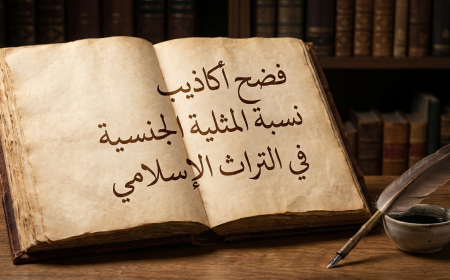 فضح أكاذيب
نسبة المثلية الجنسية
في التراث الإسلامي